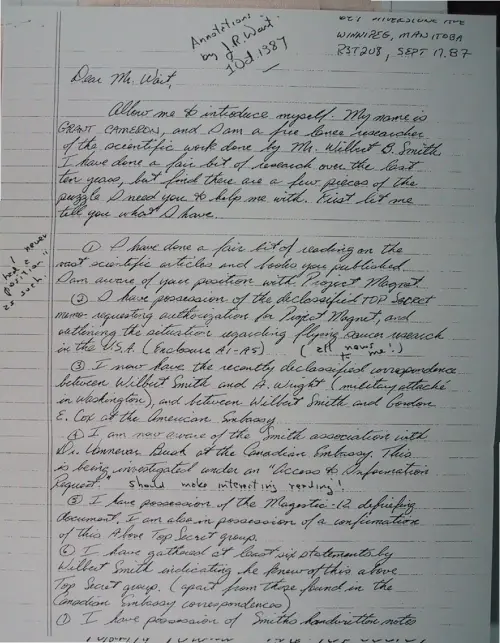 RIVERSIDE AVE
WINNIPEG, MANITOBA
R3T2U8, SEPT 17. 87
Annotations
by J.R. Wait
1 Oct 1987
Dear Mr. Wait,
Allow me to introduce myself. My name is
GRANT CAMERON, and I am a free lance researcher
of the scientific work done by Mr. Wilbert B. Smith
I have done a fair bit of research over the last
ten years, but find there are a few pieces of the
puzzle I need you to help me with. First let me
tell you what I have.
① I have done a fair bit of reading on the
most scientific articles and books you published.
I am aware of your position with Project Magnet
I never
had a
"position"
as such!
② I have possession of the declassified TOP SECRET
memo requesting authorization for Project Magnet, and
outlining the situation regarding flying saucer research
in the U.S.A. (Enclosure A1-A5) (all news
to me!)
③ I now have the recently declassified correspondence
between Wilbert Smith and A. Wright (military attaché
in Washington), and between Wilbert Smith and Gordon
E. Cox at the American Embassy
④ I am now aware of the Smith association with
Dr. Vannevar Bush at the Canadian Embassy. This
is being investigated under an "Access to Information
Request." should make interesting reading!
⑤ I have possession of the Magestic-12 defining
document. I am also in possession of a confirmation
of this Above Top Secret group.
⑥ I have gathered at least six statements by
Wilbert Smith indicating he knew of this above
Top Secret group. (apart from those found in the
Canadian Embassy correspondences)
⑦ I have possession of Smiths handwritten notes